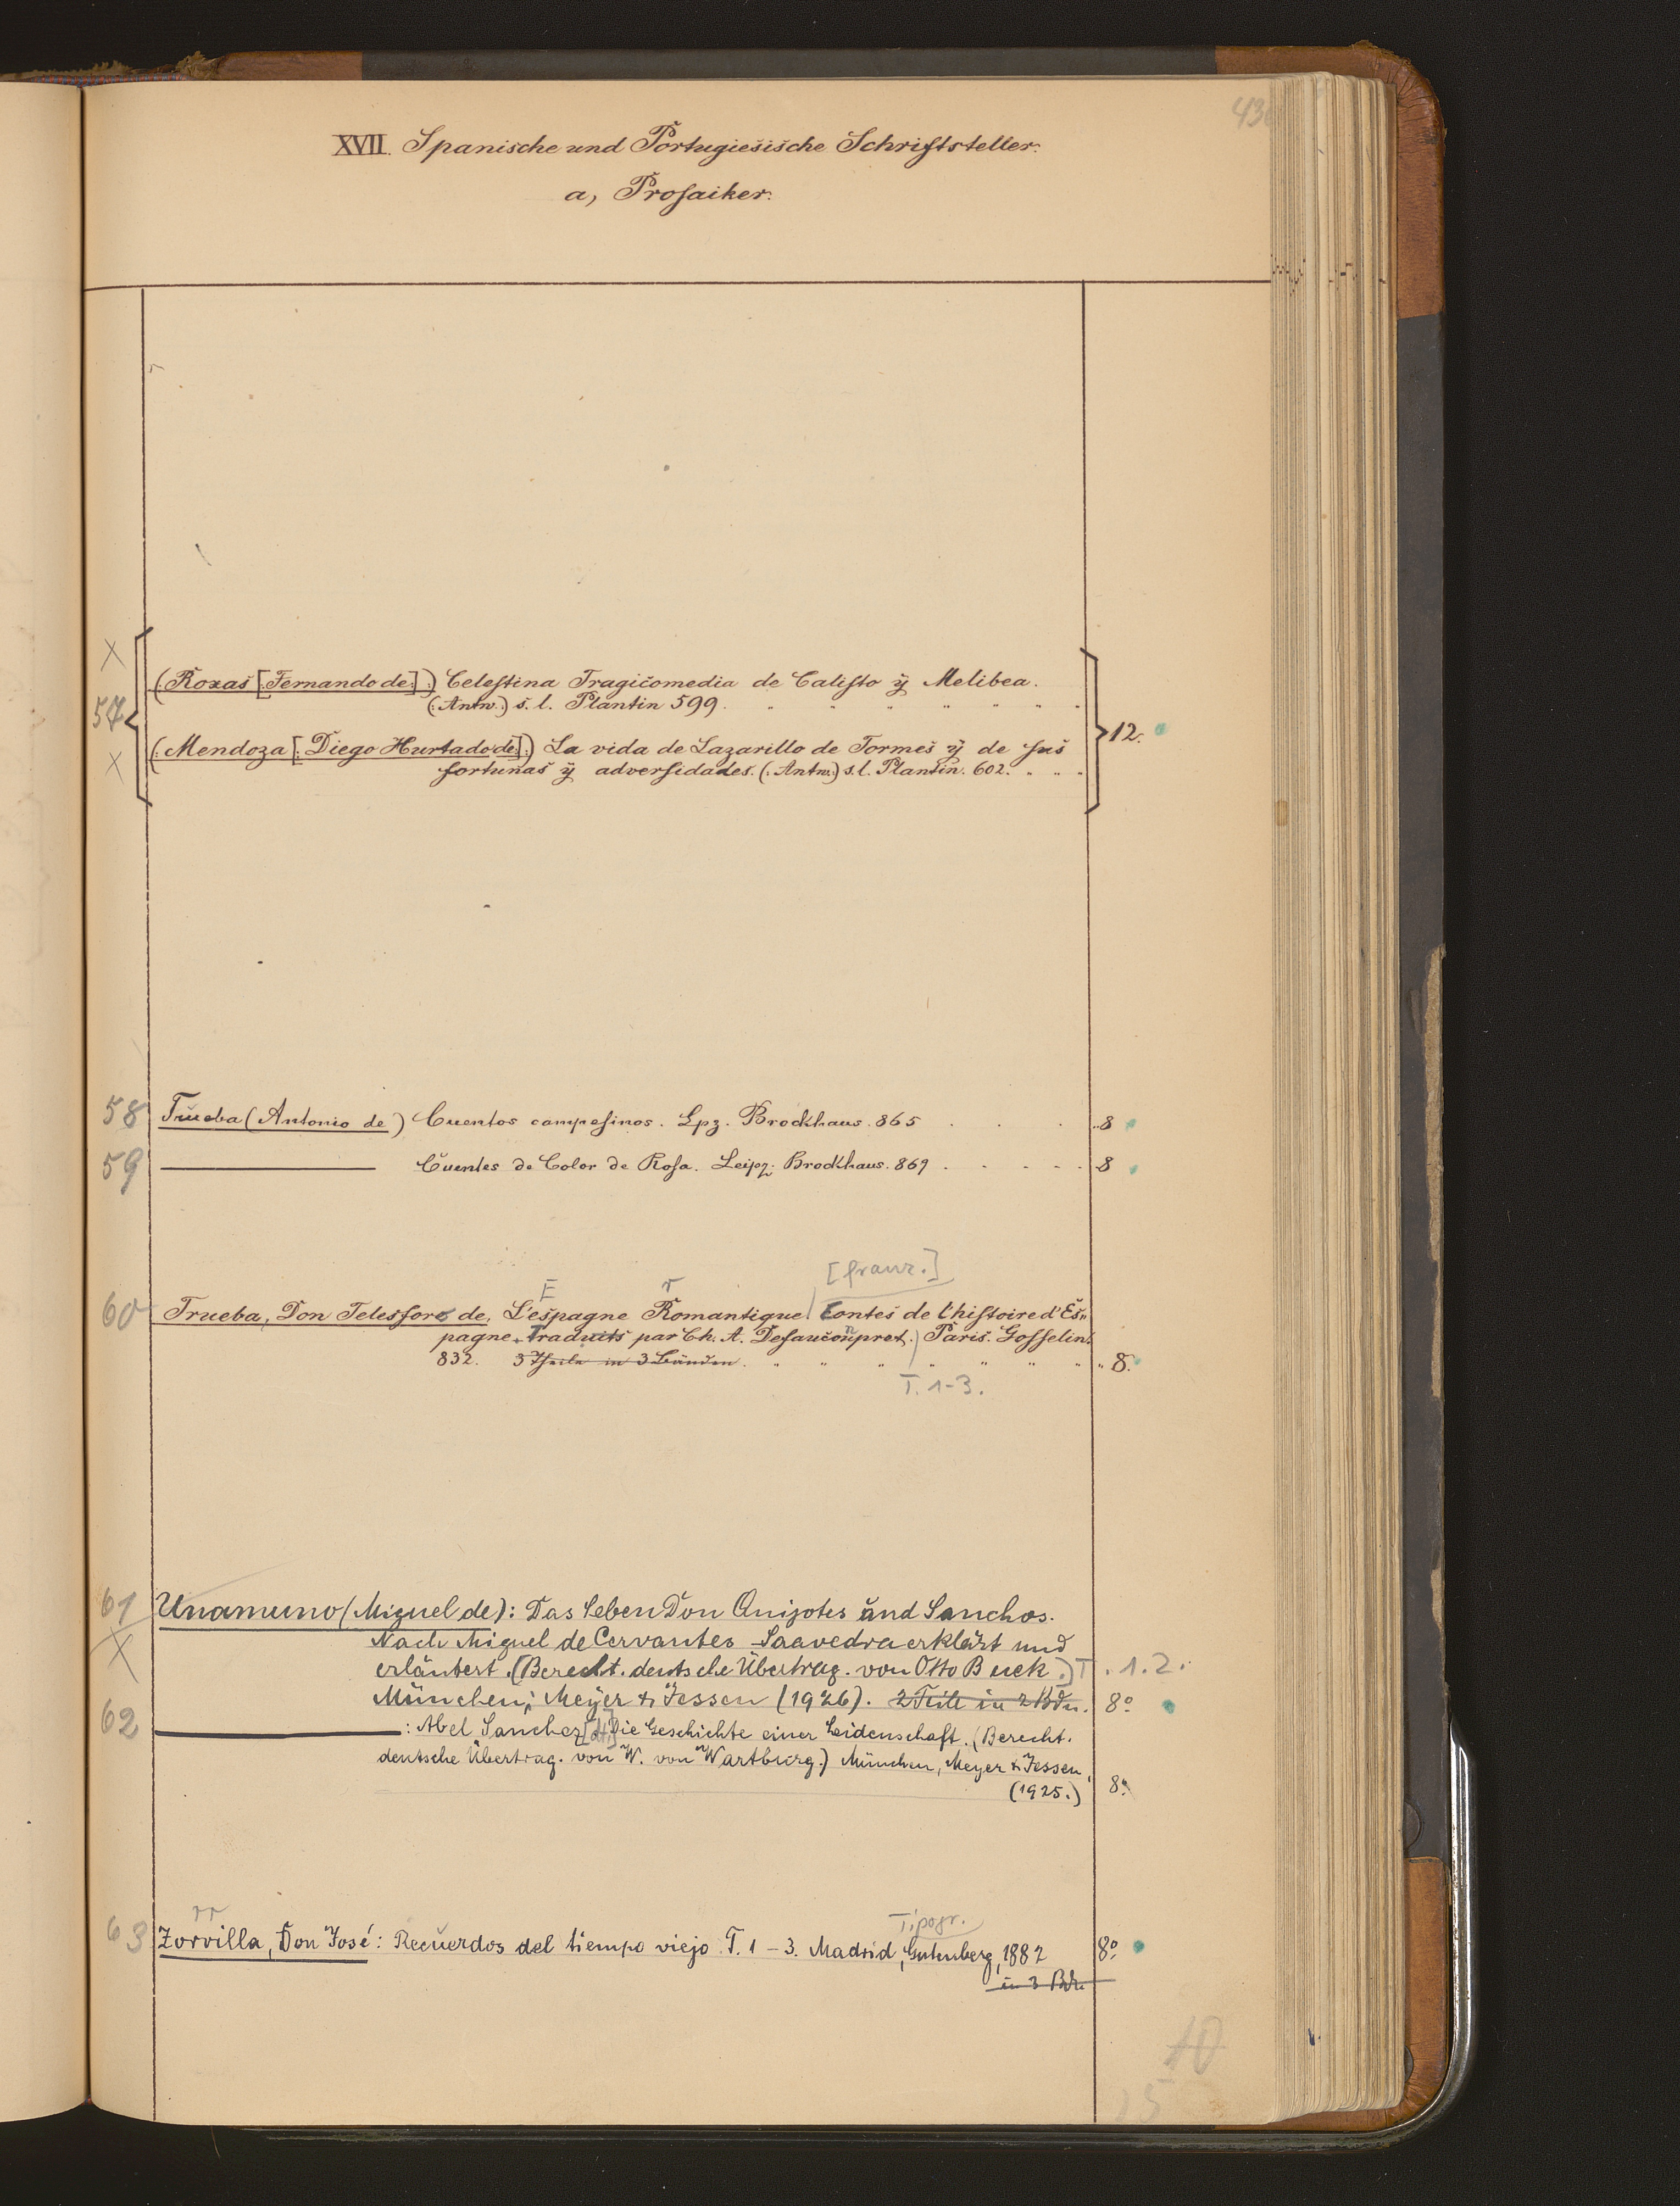 XVII. Spanische und Portugiesische Schriftsteller.
a, Prosaiker.
X
(Roxas [Fernando de.]:) Celestina Tragicomedia de Calisto ÿ Melibea.
57
(:Antw.) s. l. Plantin 599.
12.
(:Mendoza [: Diego Hurtado de]:) La vida de Lazarillo de Tormes ÿ de sus
X
fortunas ÿ adversidades. (:Antw.) s. l. Plantin. 602.
58 Trueba (Antonio de) Cuentos campesinos. Lpz. Brockhaus. 865 8
59 Cuentes de Color de Rosa. Leipz. Brockhaus. 869 8
[franz.]
E r
60 Trueba, Don Telesforo de, L'espagne Romantique. Contes de l'histoire d'Es-
pagne. Traduits par Ch. A. Defauconpret.) Paris. Gosselin.
832. 3 Theile in 3 Bänden. 8.
T. 1-3.
61 Unamuno (Miguel de): Das Leben Don Quijotes und Sanchos.
X Nach Miguel de Cervantes Saavedra erklärt und
erläutert. (Berecht. deutsche Übertrag. von Otto Buek.) T. 1. 2.
München; Meyer & Jessen (1926). 2 Teile in 2 Bdn. 8°
62 : Abel Sanchez [dt.] Die Geschichte einer Leidenschaft. (Berecht.
deutsche Übertrag. von W. von Wartburg.) München, Meyer & Jessen,
(1925.) 8°
rr Tipogr.
63 Zorrilla, Don José: Recuerdos del tiempo viejo. T. 1-3. Madrid, Gutenberg, 1882 8°
in 3 Bdn.
10
15